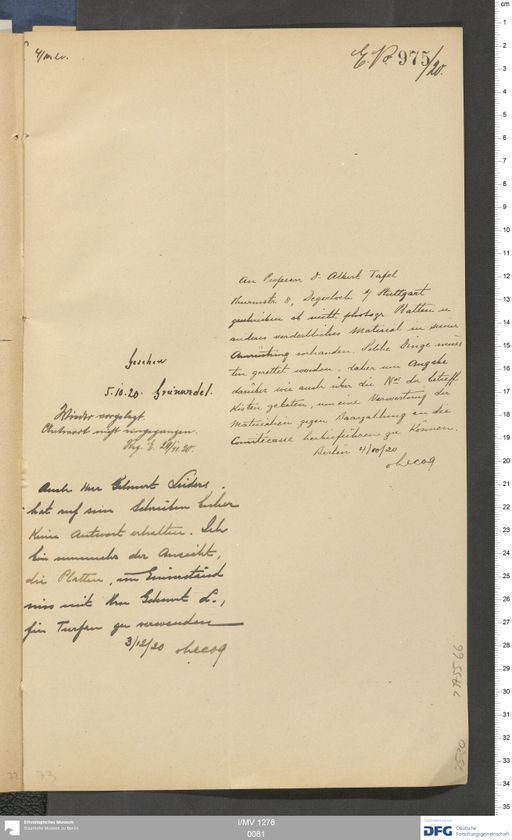 E. No 975/20.
An Professor Dr Albert Tafel
Thurmstr 8, Degerloch b/ Stuttgart
geschrieben ob nicht photogr. Platten u
anderes verderbliches Material in seiner
Ausrüstung vorhanden. Solche Dinge müss
ten gerettet werden, daher um Angabe
darüber wie auch über die Nrn der betreff.
Kisten gebeten, um eine Verwertung der
Materialien gegen Baarzahlung an die
Comitécasse herbeiführen zu können.
Berlin 4/10/20
v Lecoq
Gesehen
5.10.20. Grünwedel.
Wieder vorgelegt.
Antwort nicht eingegangen.
29/11.20.
Auch Herr Geheimrat Lüders
hat auf sein Schreiben bisher
keine Antwort erhalten. Ich
bin nunmehr der Ansicht,
die Platten, im Einverständ
niss mit Herrn Geheimrat L.,
für Turfan zu verwenden
3/12/20 v Lecoq
73
Ethnologisches Museum
Staatliche Museen zu Berlin
I/MV 1276
0081
Gefördert durch
DFG Deutsche
Forschungsgemeinschaft
cm
1
2
3
4
5
6
7
8
9
10
11
12
13
14
15
16
17
18
19
20
21
22
23
24
25
26
27
28
29
30
31
32
33
34
35